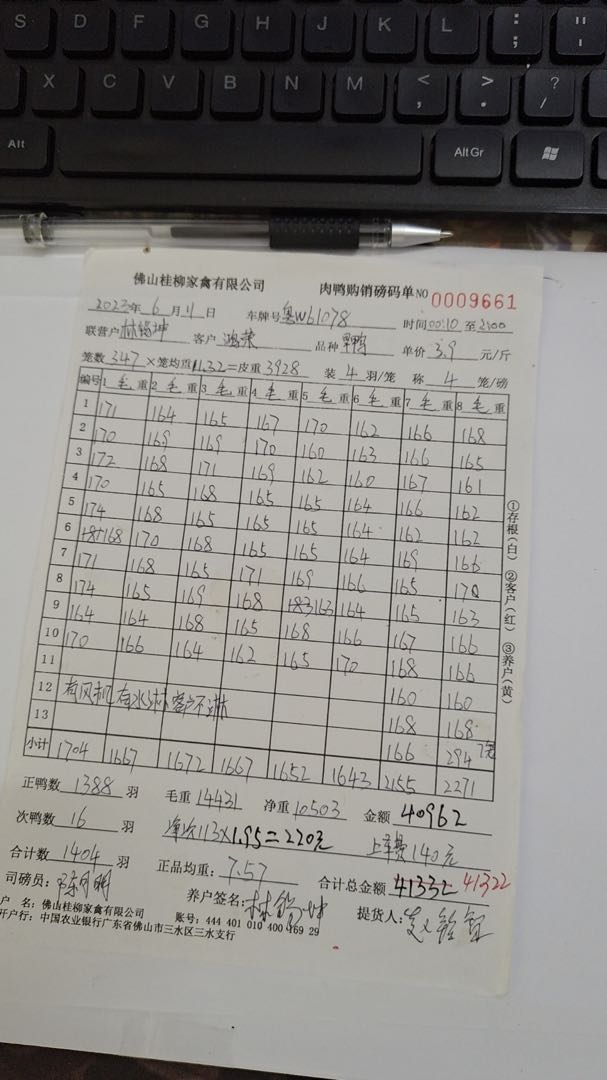 S D F G H J K L : ; " '
X C V B N M < , > . ? /
Alt Alt Gr
佛山桂柳家禽有限公司 肉鸭购销磅码单 NO 0009661
2023年 6 月 11 日 车牌号 粤W61078 时间 00:10 至 2:00
联营户 林锡坤 客户 鸿荣 品种 鸭 单价 3.9 元/斤
笼数 347 ×笼均重 11.32 =皮重 3928 装 4 羽/笼 称 4 笼/磅
编号 1 毛 重 2 毛 重 3 毛 重 4 毛 重 5 毛 重 6 毛 重 7 毛 重 8 毛 重
1 171 164 165 167 170 162 166 168
2 170 169 169 170 160 163 166 165
3 172 168 171 169 162 160 167 161
4 170 165 168 165 165 164 166 162
5 174 168 165 165 165 164 162 162
6 168 170 168 165 165 164 169 166
7 171 168 165 171 169 166 165 170
8 174 165 169 168 183 163 164 165 163
9 164 164 168 165 168 166 167 166
10 170 166 164 162 165 170 168 166
11 160 160
12 有风机 有水淋 客户不淋 168 168
13 166 294 7笼
小计 1704 1667 1672 1667 1652 1643 2155 2271
正鸭数 1388 羽 毛重 14431 净重 10503 金额 40962
次鸭数 16 羽 净次113×1.95=220元 上车费140元
合计数 1404 羽 正品均重: 7.57 合计总金额 41332 41322
司磅员: 养户签名: 林锡坤 提货人:
户 名: 佛山桂柳家禽有限公司 账号: 444 401 010 400 169 29
开户行: 中国农业银行广东省佛山市三水区三水支行
①存根(白) ②客户(红) ③养户(黄)